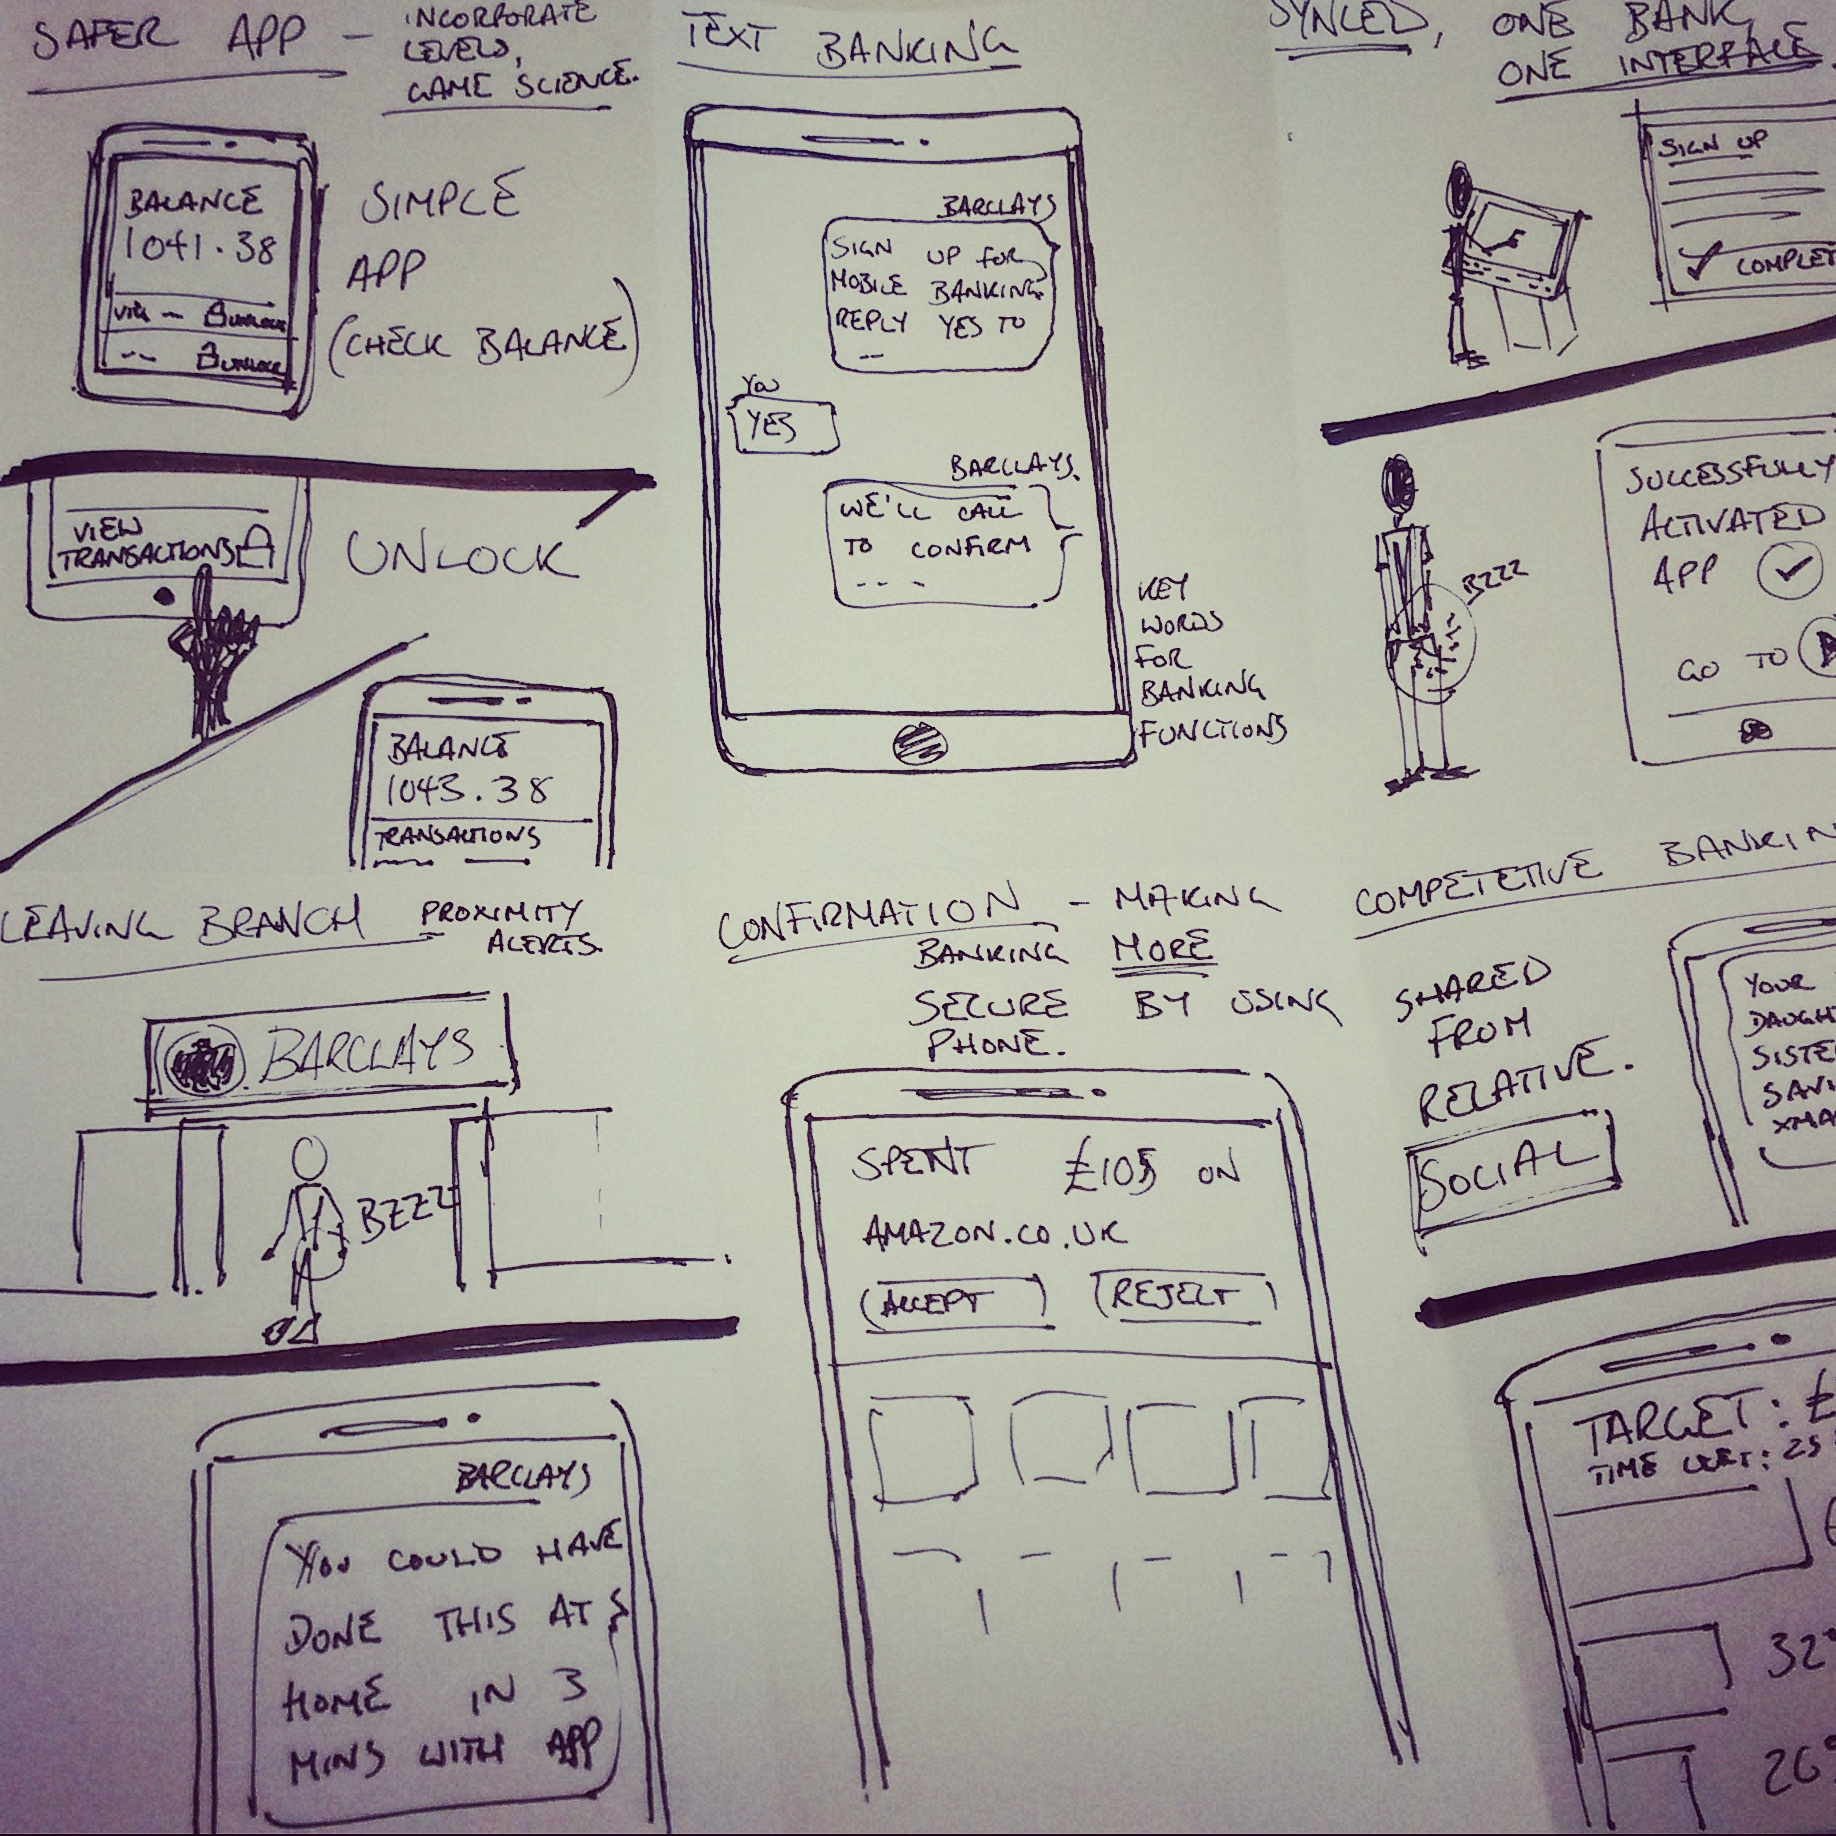 SAFER APP - INCORPORATE
LEVELS,
GAME SCIENCE.
BALANCE
1041.38
VIEW - UNLOCK
-- UNLOCK
SIMPLE
APP
(CHECK BALANCE)
VIEW
TRANSACTIONS
UNLOCK
BALANCE
1043.38
TRANSACTIONS
TEXT BANKING
BARCLAYS
SIGN UP FOR
MOBILE BANKING.
REPLY YES TO
YOU
YES
BARCLAYS.
WE'LL CALL
TO CONFIRM
---
KEY
WORDS
FOR
BANKING
FUNCTIONS
SYNCED, ONE BANK,
ONE INTERFACE.
SIGN UP
COMPLET
BZZZ
SUCCESSFULLY
ACTIVATED
APP
GO TO
LEAVING BRANCH PROXIMITY
ALERTS.
BARCLAYS
BZZZ
BARCLAYS
YOU COULD HAVE
DONE THIS AT
HOME IN 3
MINS WITH APP
CONFIRMATION - MAKING
BANKING MORE
SECURE BY USING
PHONE.
SPENT £105 ON
AMAZON.CO.UK
ACCEPT REJECT
COMPETETIVE BANKIN
SHARED
FROM
RELATIVE.
SOCIAL
YOUR
DAUGHT
SISTE
SAVI
XMA
TARGET: £
TIME LEFT: 25
32
26